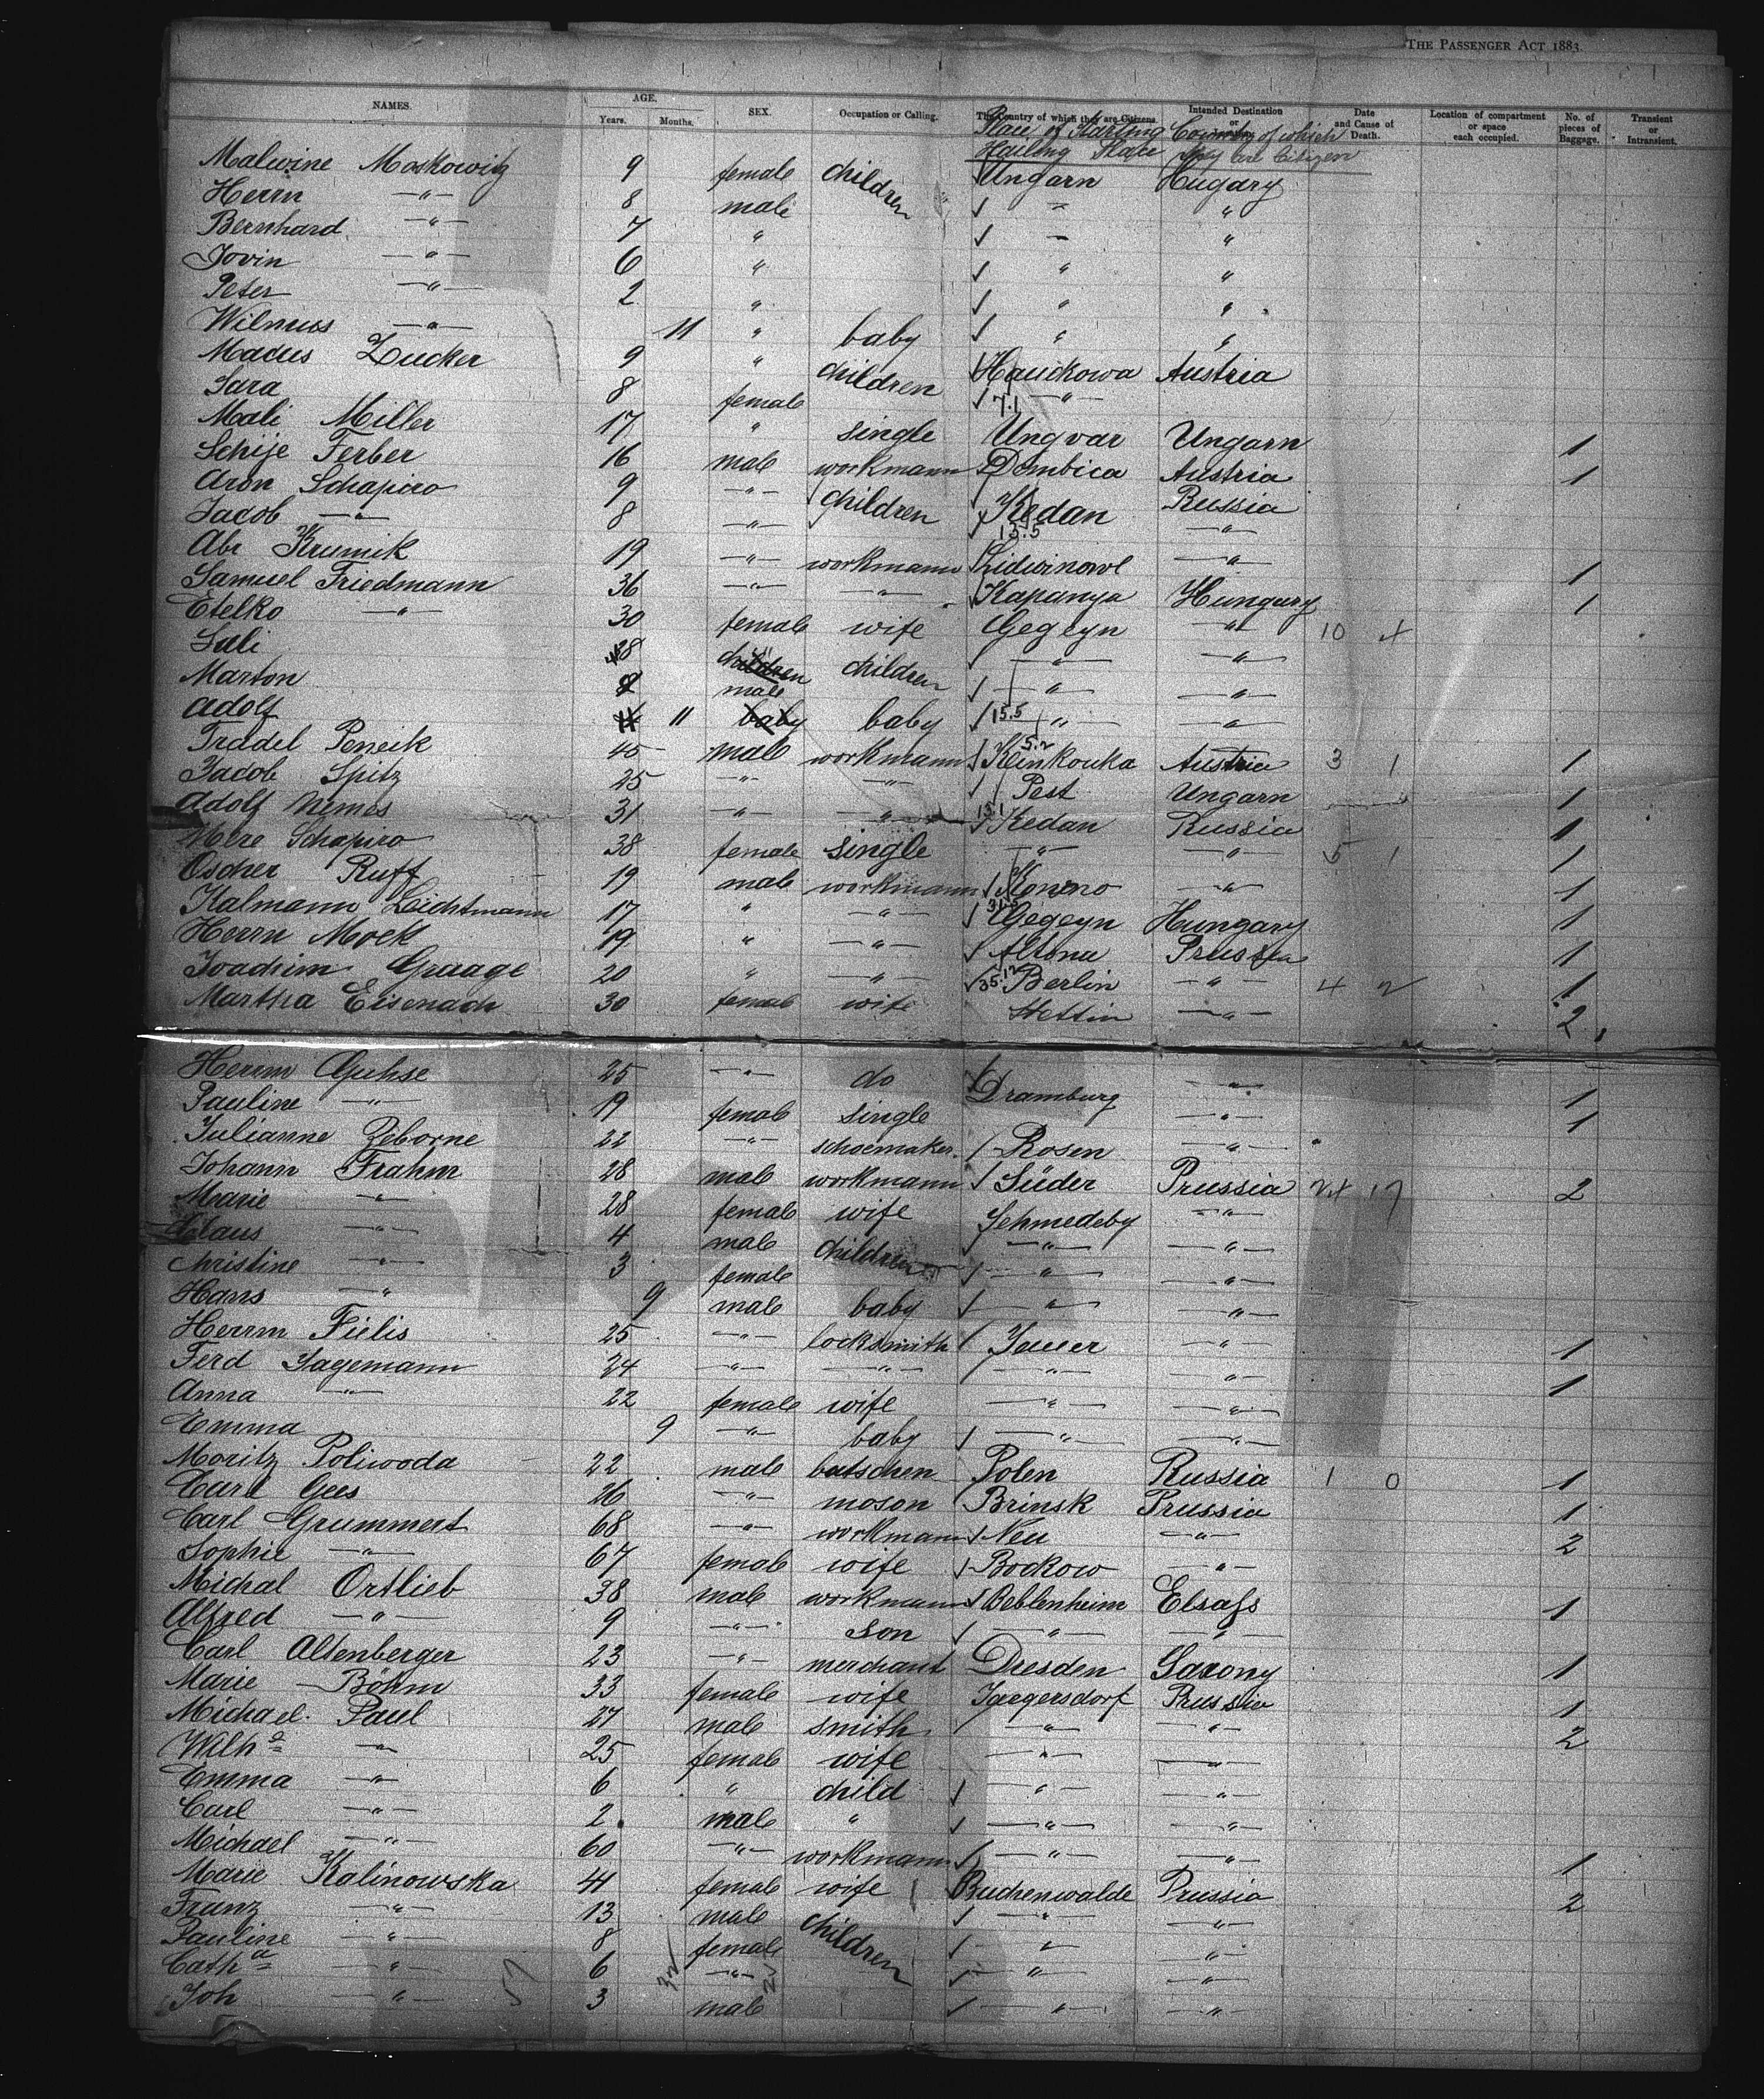 THE PASSENGER ACT 1883.
NAMES. AGE. Years. Months. SEX. Occupation or Calling. The Country of which they are Citizens. Intended Destination or Date and Cause of Death. Location of compartment or space each occupied. No. of pieces of Baggage. Transient or Intransient.
Place of Starting Country of which
Hailing Place they are Citizen
Malwine Moskowitz 9 female children Ungarn Hugary
Herm —"— 8 male " "
Bernhard —"— 7 " " "
Jovin —"— 6 " " "
Peter —"— 2 " " "
Wilmuss —"— 11 " baby " "
Macus Zucker 9 " children Hauikowa Austria
Sara 8 female 7.1 —"—
Mali Miller 17 " single Ungvar Ungarn 1
Schije Ferber 16 male workmann Dombica Austria 1
Aron Schapiro 9 —"— children Kedan Russia
Jacob —"— 8 —"— 13.5 —"—
Abr Krumik 19 —"— workmann Lidwinowl —"— 1
Samuel Friedmann 36 —"— —"— Kapanya Hungary 1
Etelko —"— 30 female wife Gegeyn —"— 10 4
Sali 8 children children —"— —"—
Marton male —"— —"—
Adolf 11 baby baby 15.5 —"— —"—
Tradel Peneik 45 male workmann 5.2 Keinkouka Austria 3 1 1
Jacob Spitz 25 —"— —"— Pest Ungarn 1
Adolf Nemes 31 —"— —"— 13.1 Kedan Russia 1
Mere Schapiro 38 female single —"— —"— 5 1 1
Oscher Ruff 19 male workmann Konno —"— 1
Kalmann Leichtmann 17 " —"— Gegeyn Hungary 1
Herm Mock 19 " —"— Altona Prussia 1
Joachim Graage 20 " —"— 35.12 Berlin —"— 4 2 1
Martha Eisenach 30 female wife Stettin —"— 2
Herrm Guhse 25 —"— do Dramburg —"— 1
Pauline —"— 19 female single —"— 1
Julianne Zeborne 22 —"— schoemaker. Rosen —"—
Johann Frahm 28 male workmann Süder Prussia 24 17 2
Marie —"— 28 female wife Schmedeby —"—
Claus —"— 4 male children —"— —"—
Christine —"— 3 female —"— —"—
Hans —"— 9 male baby —"— —"—
Herrm Fielis 25 —"— locksmith Jauer —"— 1
Ferd Hagemann 24 —"— —"— —"— —"— 1
Anna —"— 22 female wife —"— —"—
Emma 9 —"— baby —"— —"—
Moritz Poliwoda 22 male butschen Polen Russia 1 0 1
Carl Gees 26 —"— moson Brinsk Prussia 1
Carl Grummert 68 —"— workmann Neu —"— 2
Sophie —"— 67 female wife Bockow —"—
Michal Ortlieb 38 male workmann Beblenheim Elsaſs 1
Alfred —"— 9 —"— son —"— —"—
Carl Altenberger 23 —"— merchant Dresden Saxony 1
Marie Böhm 33 female wife Jaegersdorf Prussia 1
Michael Paul 27 male smith —"— —"— 2
Wilhe —"— 25 female wife —"— —"—
Emma —"— 6 " child —"— —"—
Carl —"— 2 male " —"— —"—
Michael —"— 60 —"— workmann —"— —"— 1
Marie Kalinowska 41 female wife Buchenwalde Prussia 2
Franz —"— 13 male children —"— —"—
Pauline —"— 8 female —"— —"—
Catha —"— 6 —"— —"— —"—
Joh —"— 3 male —"— —"—